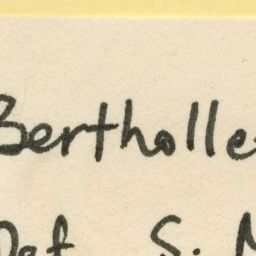 Bertholle
Det. S. M